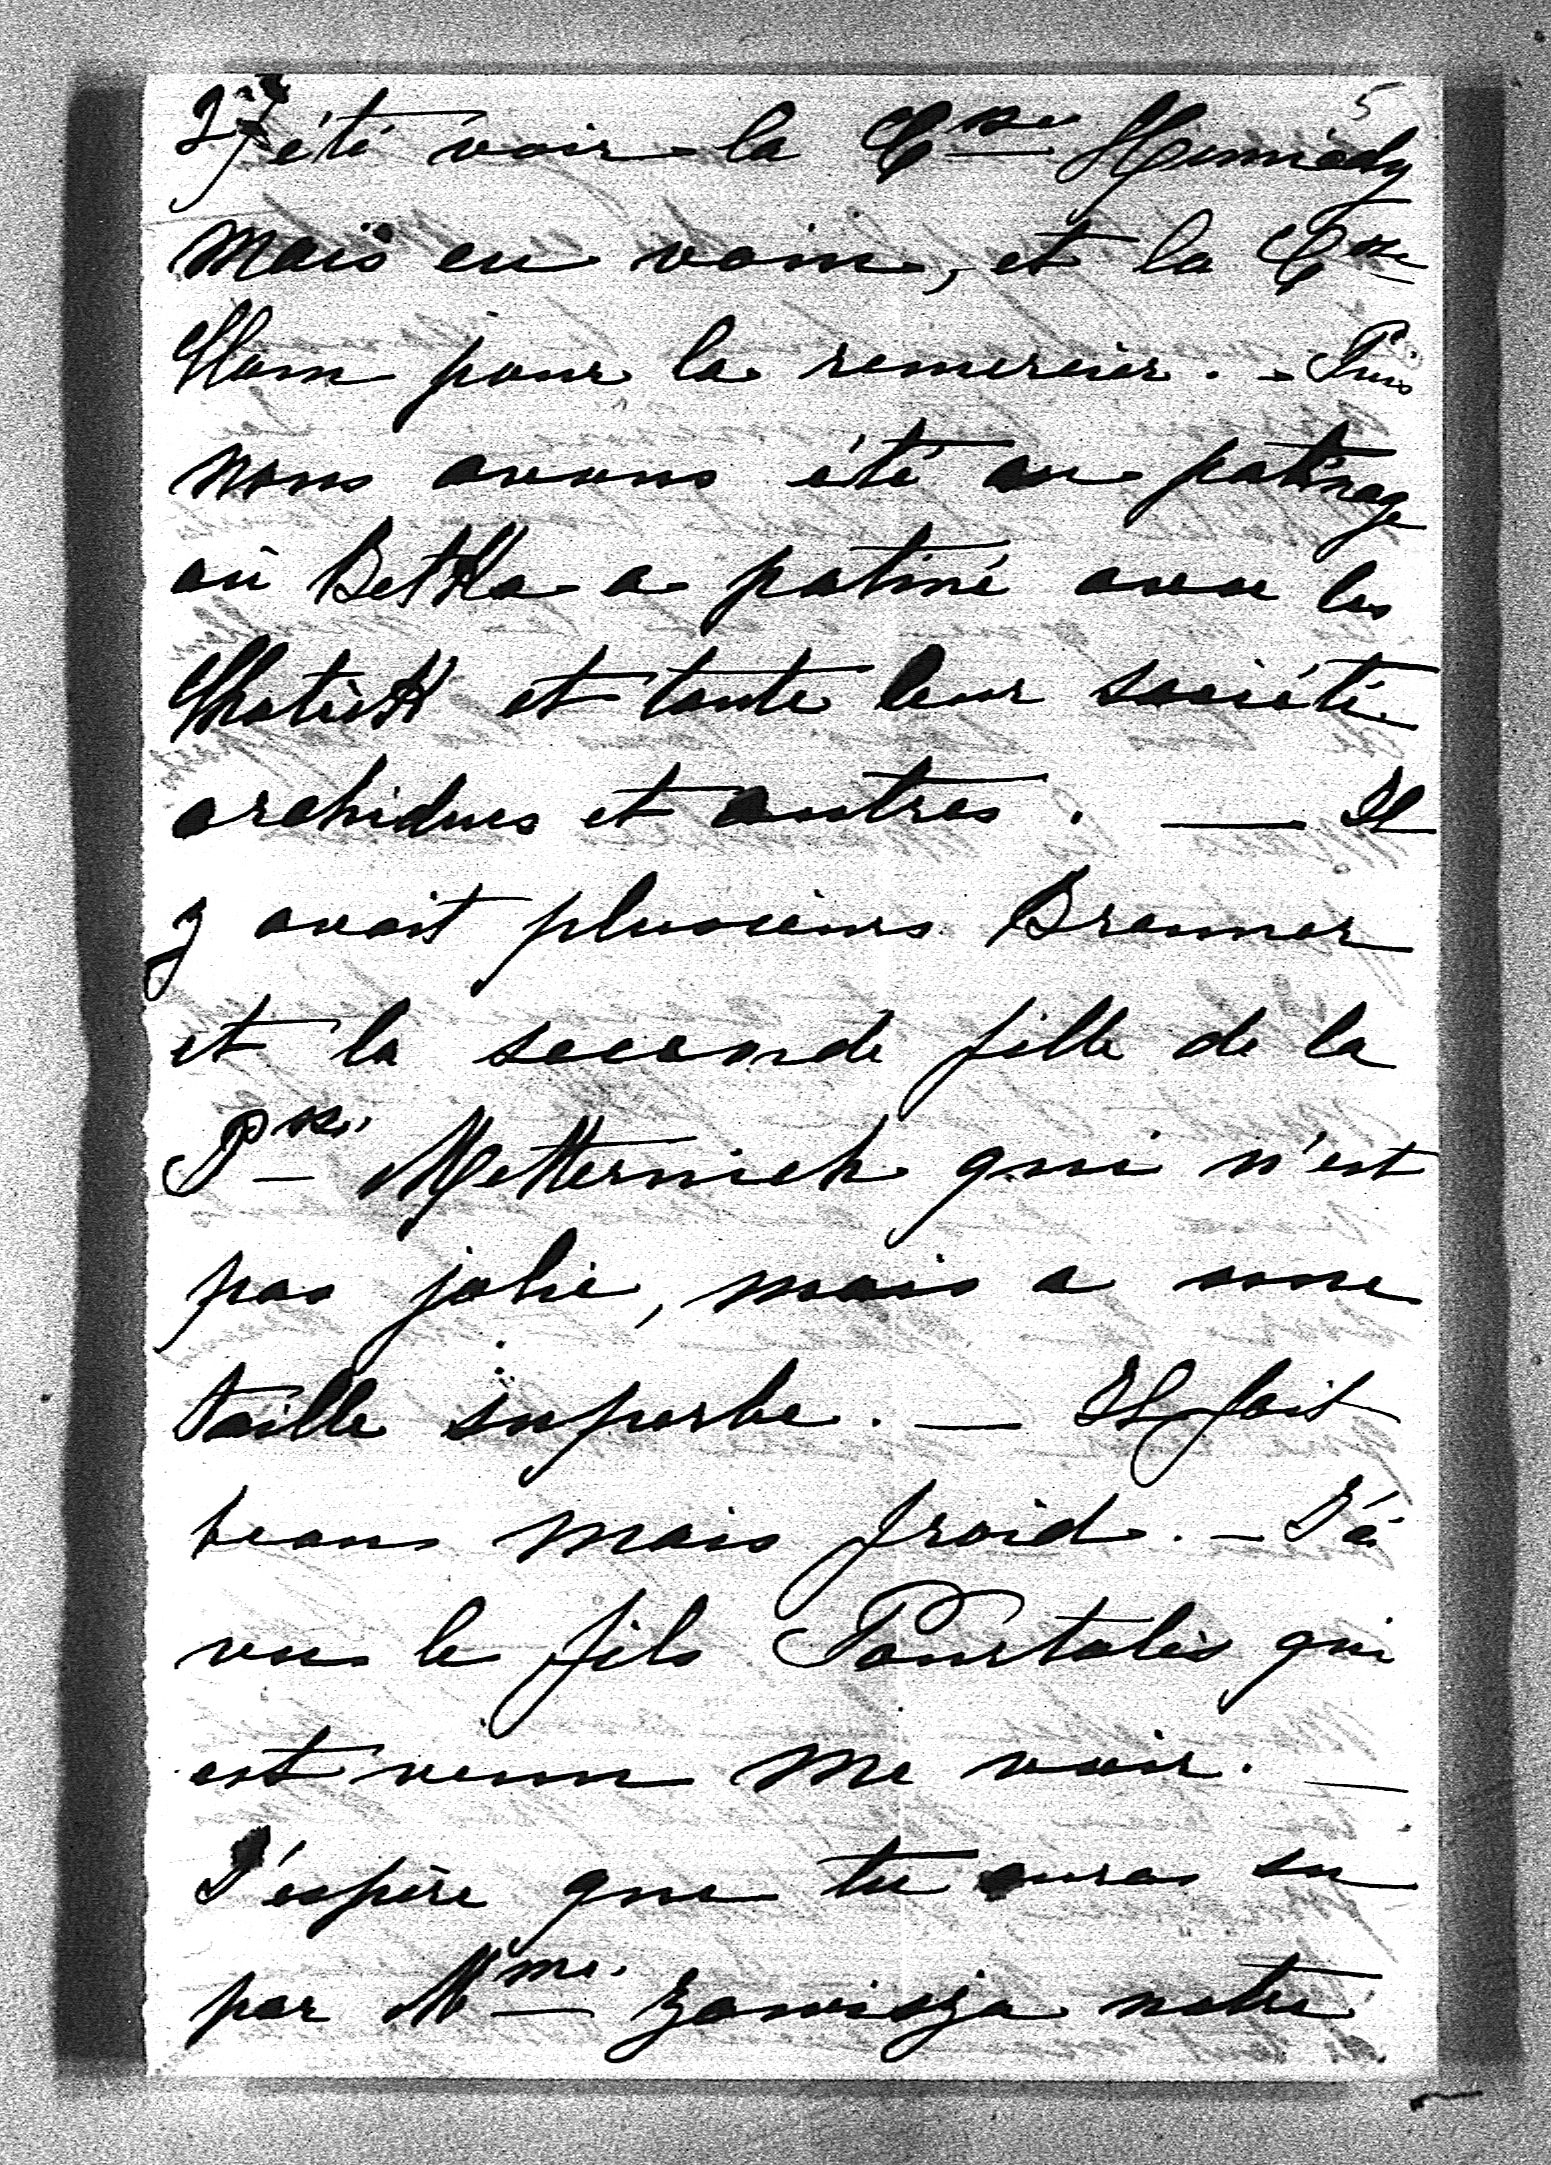 5
2) été voir la Csse Hunniady
mais en vain, et la Csse
Clam pour la remercier. - Puis
nous avons été au patinage
où Betka a patiné avec les
Chotek et toute leur société
archiducs et autres. — Il
y avait plusieurs Breunner
et la seconde fille de la
Psse Metternich qui n'est
pas jolie, mais a une
taille superbe. — Il fait
beau mais froid. - J'ai
vu le fils Pourtalès qui
est venu me voir. —
J'espère que tu auras su
par Mme Zawisza notre